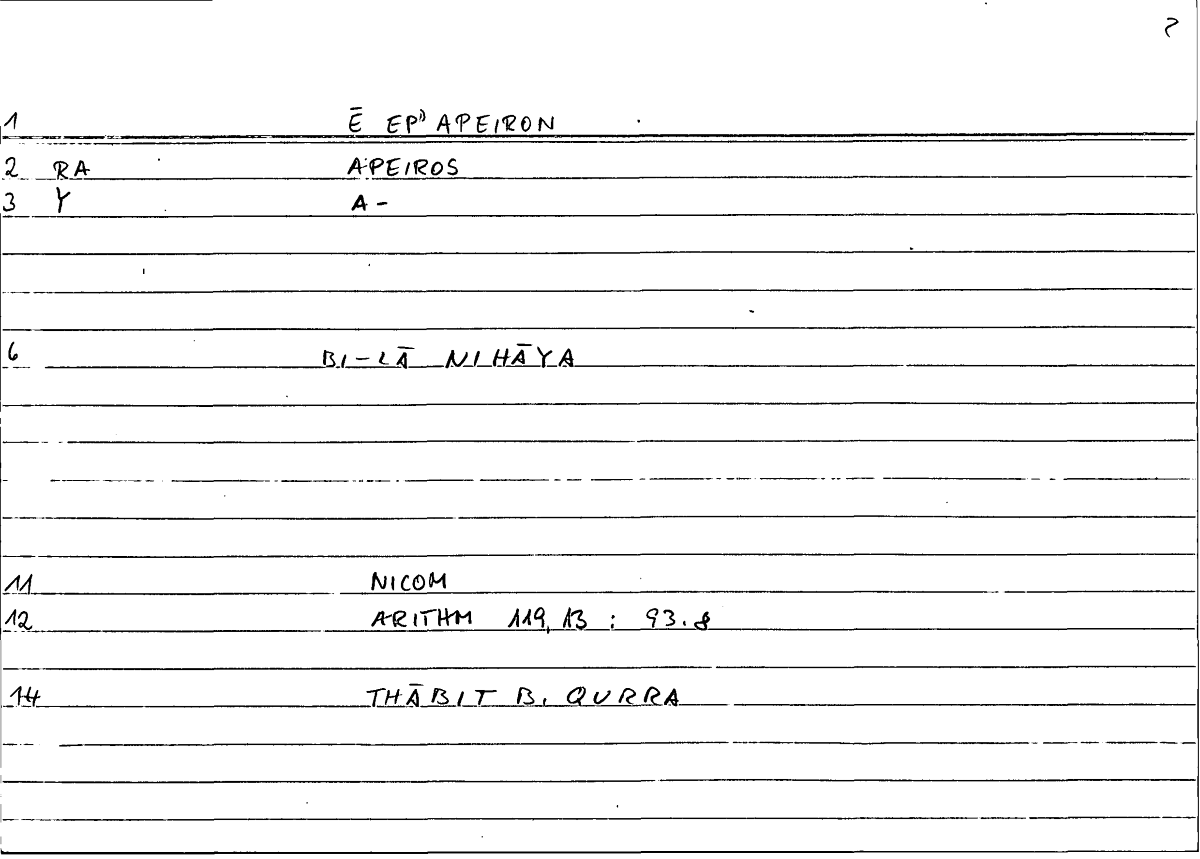 2
1 Ē EP' APEIRON
2 RA APEIROS
3 Y A-
6 BI-LĀ NIHĀYA
11 NICOM
12 ARITHM 119,13 : 93.8
14 THĀBIT B. QURRA